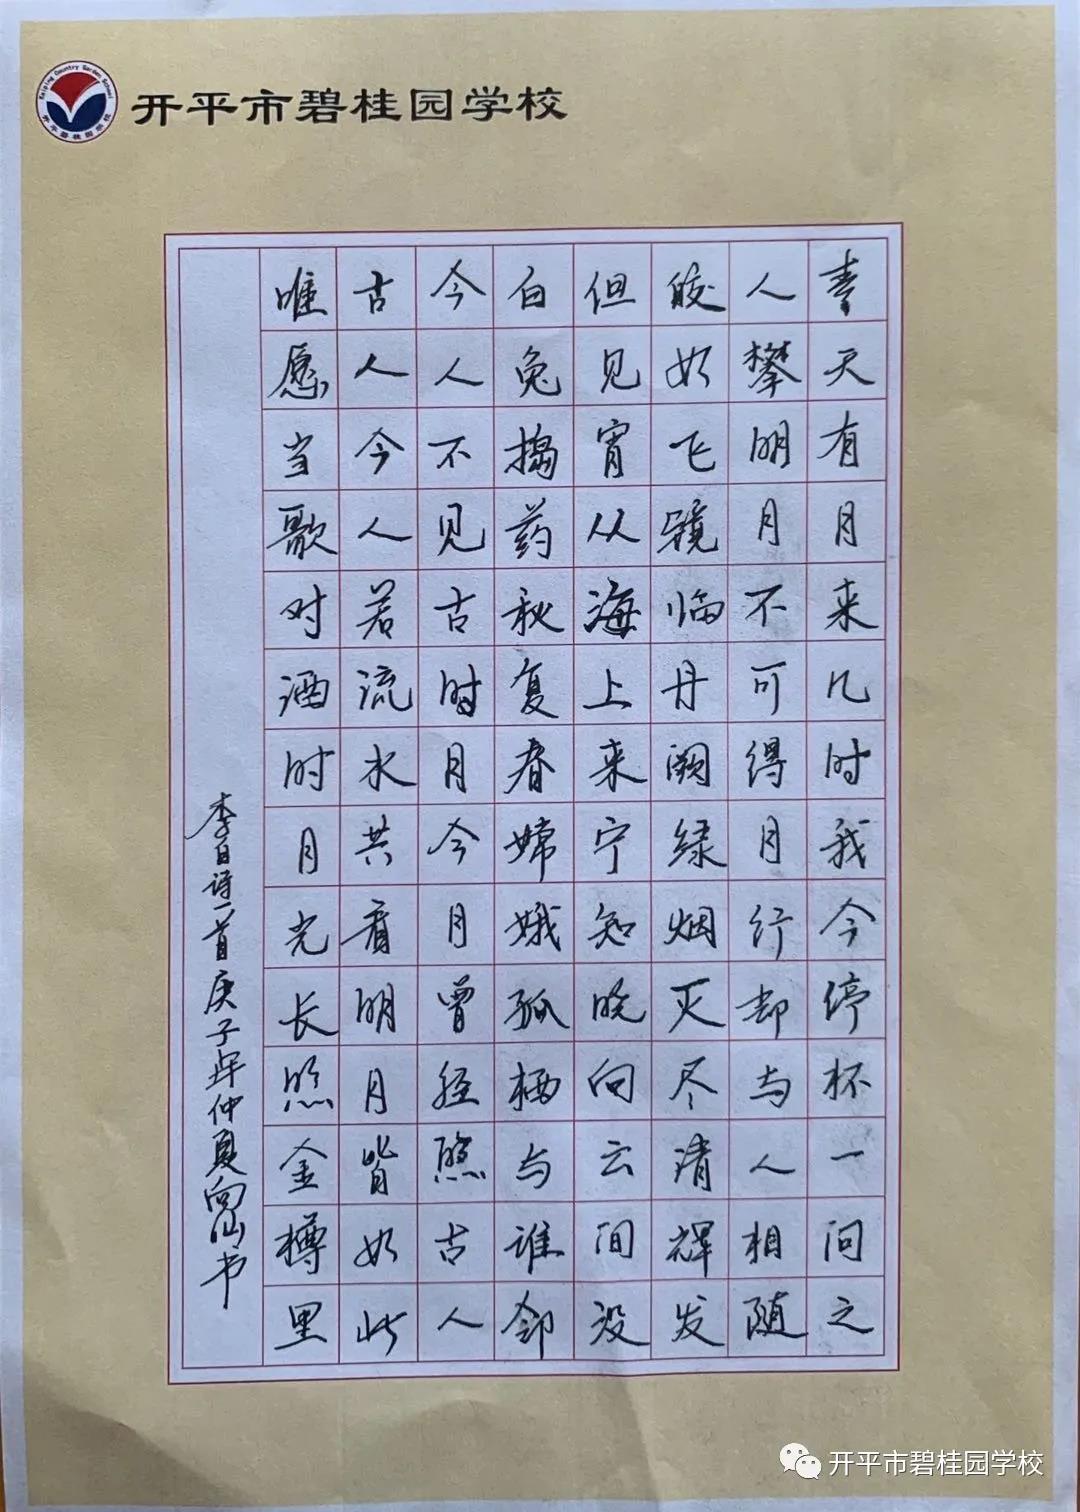 Kaiping Country Garden School
开平碧桂园学校
开平市碧桂园学校
青天有月来几时我今停杯一问之
人攀明月不可得月行却与人相随
皎如飞镜临丹阙绿烟灭尽清辉发
但见宵从海上来宁知晓向云间没
白兔捣药秋复春嫦娥孤栖与谁邻
今人不见古时月今月曾经照古人
古人今人若流水共看明月皆如此
唯愿当歌对酒时月光长照金樽里
李白诗一首庚子年仲夏向仙书
开平市碧桂园学校